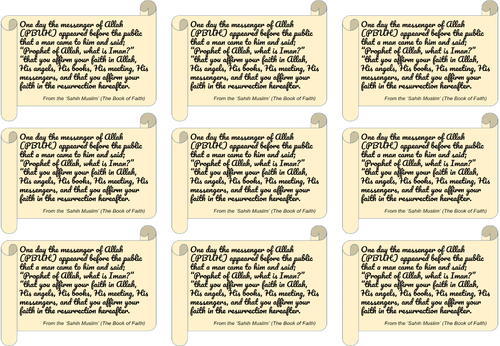 One day the messenger of Allah
(PBUH) appeared before the public
that a man came to him and said;
"Prophet of Allah, what is Iman?"
"that you affirm your faith in Allah,
His angels, His books, His meeting, His
messengers, and that you affirm your
faith in the resurrection hereafter.
From the 'Sahih Muslim' (The Book of Faith)
One day the messenger of Allah
(PBUH) appeared before the public
that a man came to him and said;
"Prophet of Allah, what is Iman?"
"that you affirm your faith in Allah,
His angels, His books, His meeting, His
messengers, and that you affirm your
faith in the resurrection hereafter.
From the 'Sahih Muslim' (The Book of Faith)
One day the messenger of Allah
(PBUH) appeared before the public
that a man came to him and said;
"Prophet of Allah, what is Iman?"
"that you affirm your faith in Allah,
His angels, His books, His meeting, His
messengers, and that you affirm your
faith in the resurrection hereafter.
From the 'Sahih Muslim' (The Book of Faith)
One day the messenger of Allah
(PBUH) appeared before the public
that a man came to him and said;
"Prophet of Allah, what is Iman?"
"that you affirm your faith in Allah,
His angels, His books, His meeting, His
messengers, and that you affirm your
faith in the resurrection hereafter.
From the 'Sahih Muslim' (The Book of Faith)
One day the messenger of Allah
(PBUH) appeared before the public
that a man came to him and said;
"Prophet of Allah, what is Iman?"
"that you affirm your faith in Allah,
His angels, His books, His meeting, His
messengers, and that you affirm your
faith in the resurrection hereafter.
From the 'Sahih Muslim' (The Book of Faith)
One day the messenger of Allah
(PBUH) appeared before the public
that a man came to him and said;
"Prophet of Allah, what is Iman?"
"that you affirm your faith in Allah,
His angels, His books, His meeting, His
messengers, and that you affirm your
faith in the resurrection hereafter.
From the 'Sahih Muslim' (The Book of Faith)
One day the messenger of Allah
(PBUH) appeared before the public
that a man came to him and said;
"Prophet of Allah, what is Iman?"
"that you affirm your faith in Allah,
His angels, His books, His meeting, His
messengers, and that you affirm your
faith in the resurrection hereafter.
From the 'Sahih Muslim' (The Book of Faith)
One day the messenger of Allah
(PBUH) appeared before the public
that a man came to him and said;
"Prophet of Allah, what is Iman?"
"that you affirm your faith in Allah,
His angels, His books, His meeting, His
messengers, and that you affirm your
faith in the resurrection hereafter.
From the 'Sahih Muslim' (The Book of Faith)
One day the messenger of Allah
(PBUH) appeared before the public
that a man came to him and said;
"Prophet of Allah, what is Iman?"
"that you affirm your faith in Allah,
His angels, His books, His meeting, His
messengers, and that you affirm your
faith in the resurrection hereafter.
From the 'Sahih Muslim' (The Book of Faith)